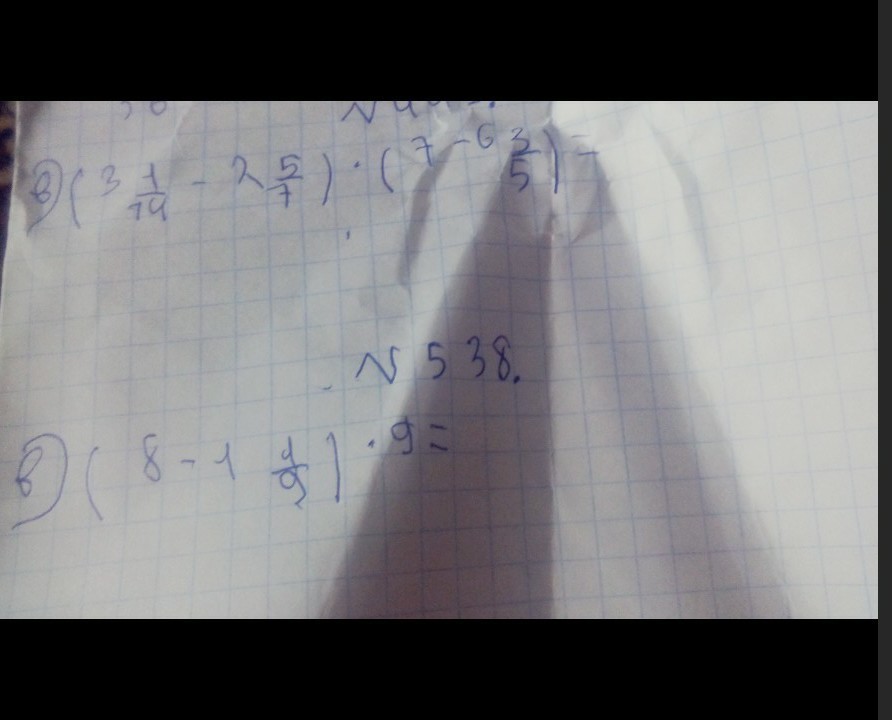 в) (3 1/14 - 2 5/7) · (7 - 6 3/5) =
N 538.
в) (8 - 1 1/9) · 9 =